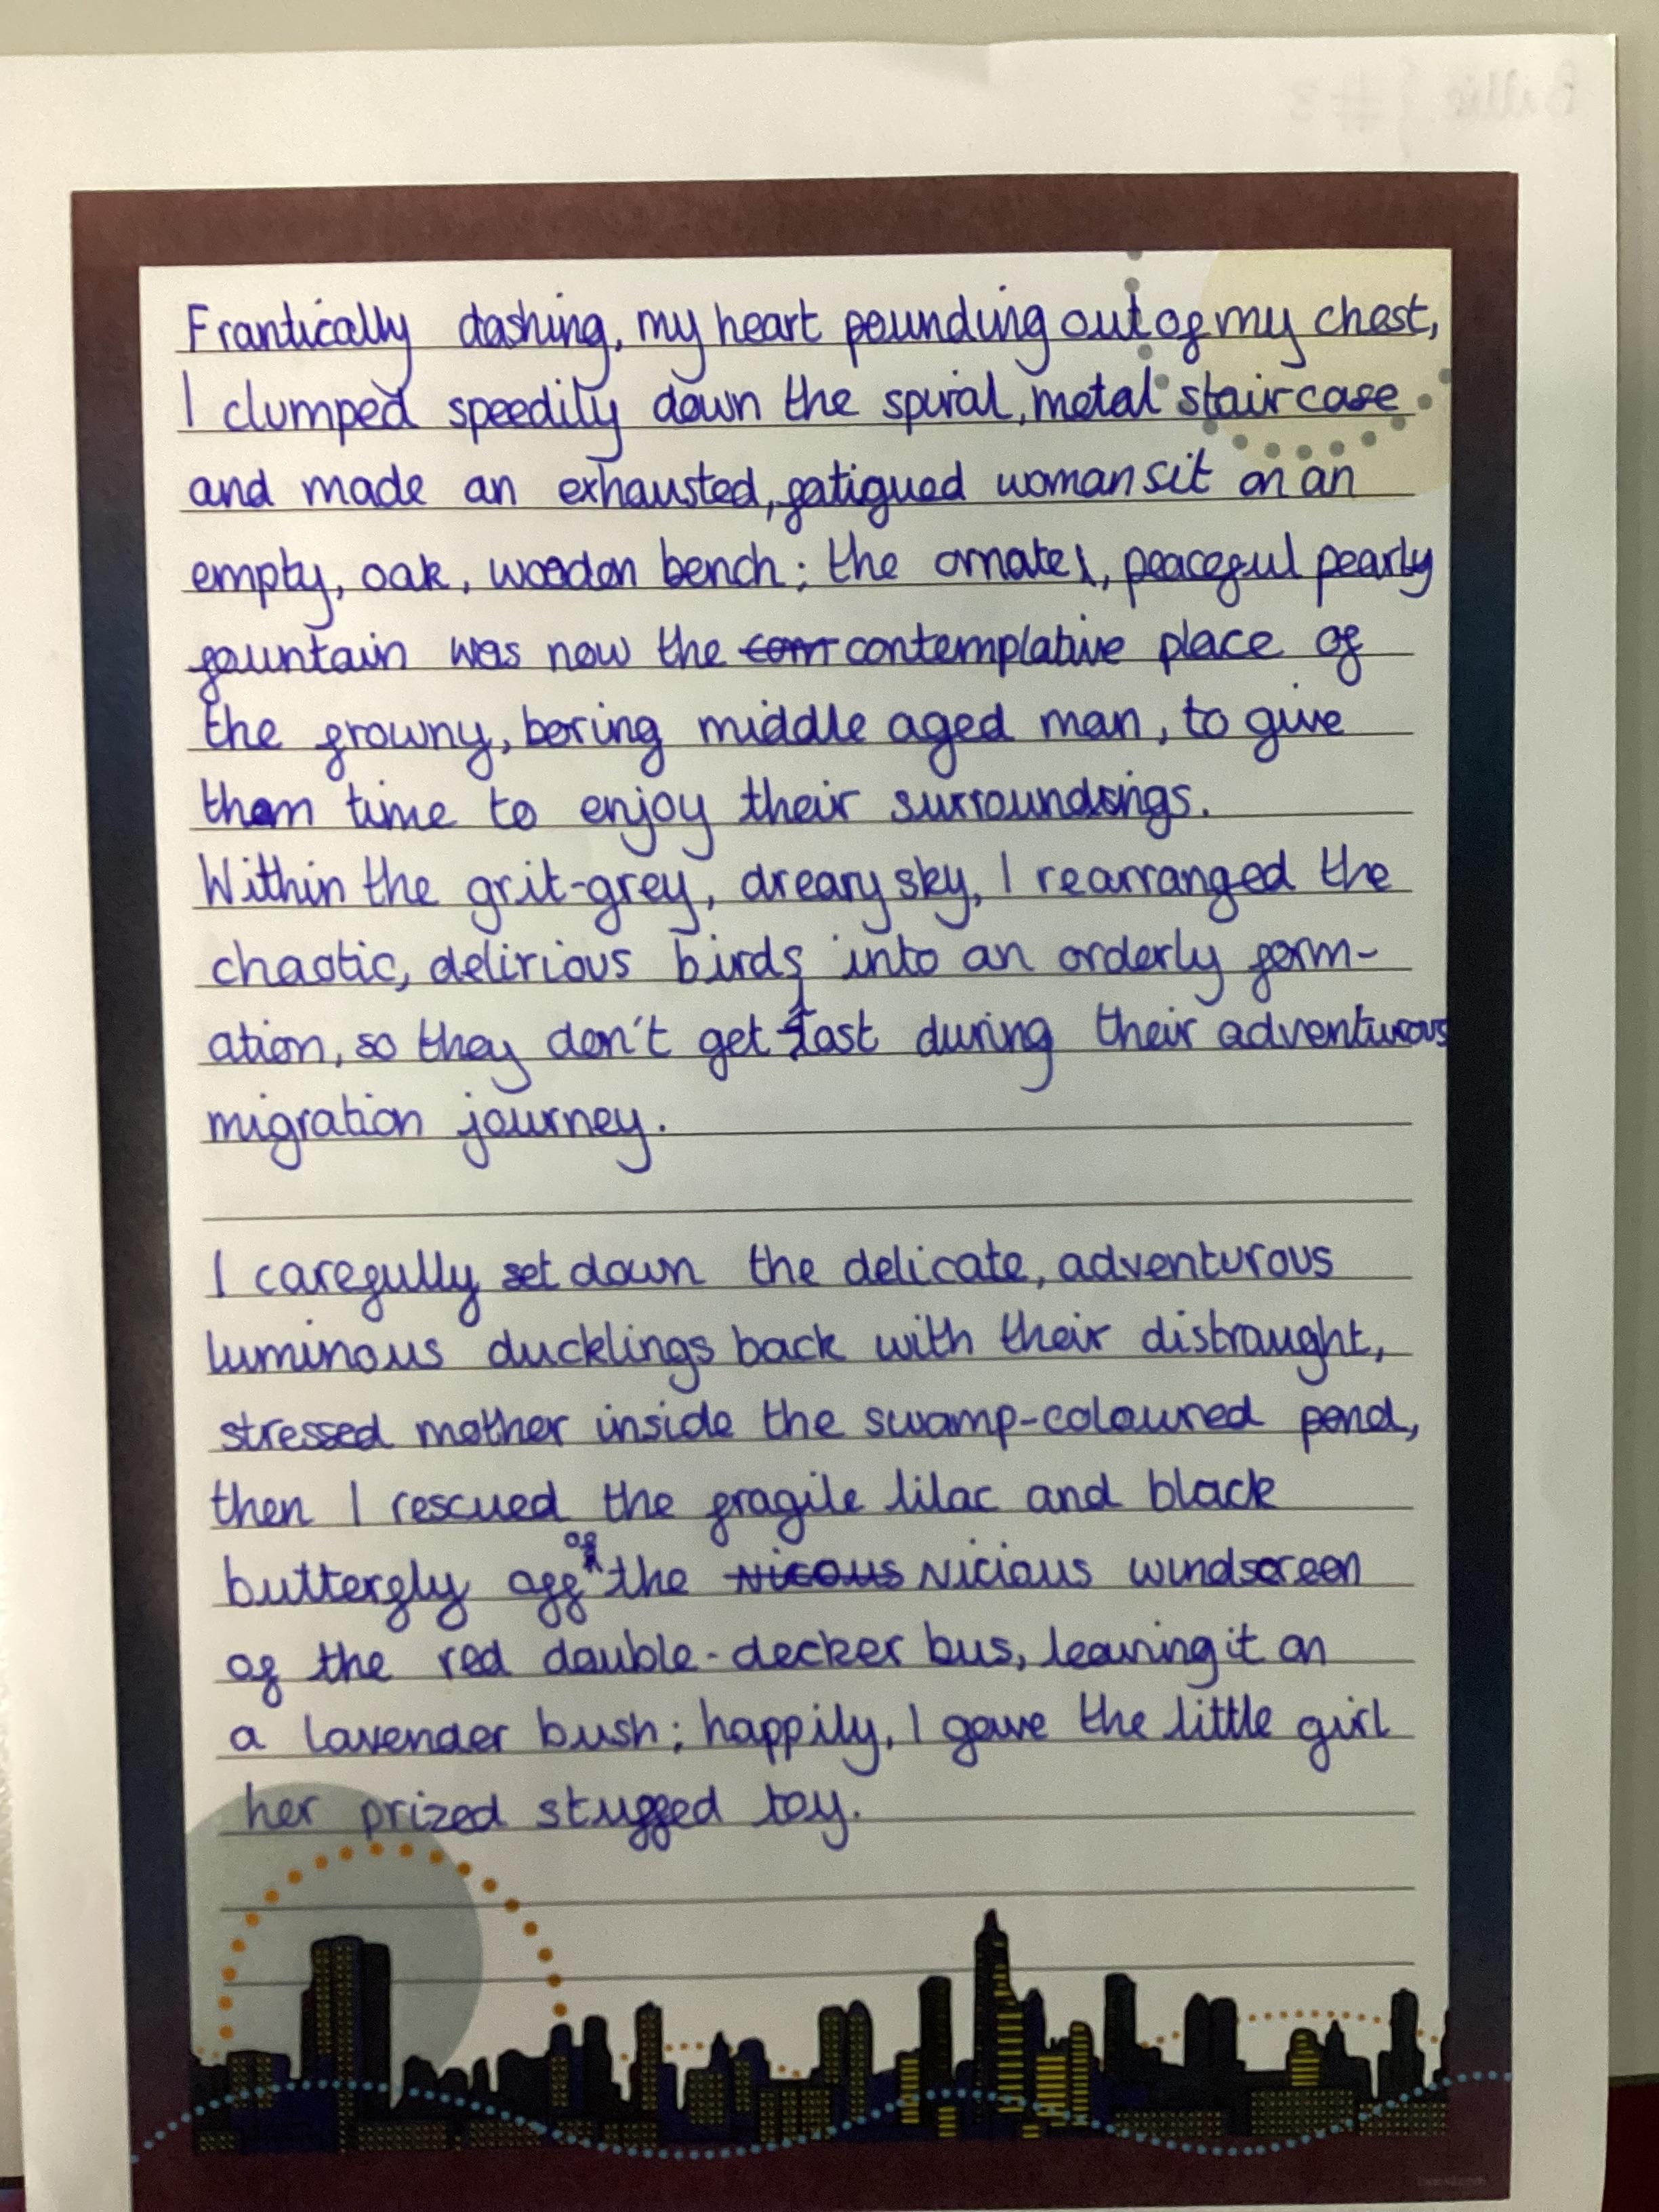 Frantically dashing, my heart pounding out of my chest,
I clumped speedily down the spiral, metal staircase
and made an exhausted, fatigued woman sit on an
empty, oak, wooden bench; the ornate, peaceful pearly
fountain was now the contemplative place of
the frowny, boring middle aged man, to give
them time to enjoy their surroundings.
Within the grit-grey, dreary sky, I rearranged the
chaotic, delirious birds into an orderly form-
ation, so they don't get lost during their adventurous
migration journey.
I carefully set down the delicate, adventurous
luminous ducklings back with their distraught,
stressed mother inside the swamp-coloured pond,
then I rescued the fragile lilac and black
butterfly off of the vicious windscreen
of the red double-decker bus, leaving it on
a lavender bush; happily, I gave the little girl
her prized stuffed toy.